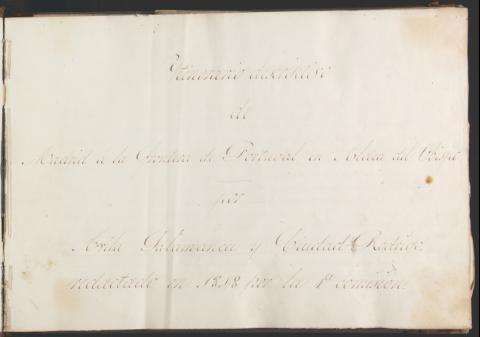 Ytinerario descriptivo
de
Madrid á la Frontera de Portugal en Aldea del Obispo
por
Avila Salamanca y Ciudad Rodrigo
redactado en 1858 por la 1ª comision